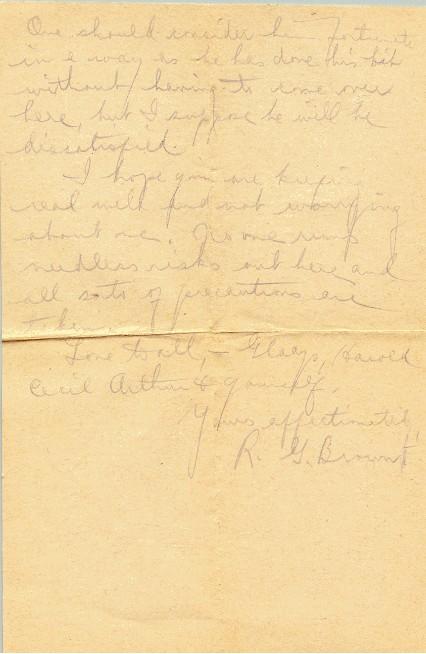 One should consider him fortunate
in a way as he has done his bit
without having to come over
here, but I suppose he will be
dissatisfied.
I hope you are keeping
real well and not worrying
about me. No one runs
needless risks out here and
all sorts of precautions are
taken.
Love to all, - Gladys, Harold
Cecil Arthur & yourself.
Yours affectionately,
R. G. Brown